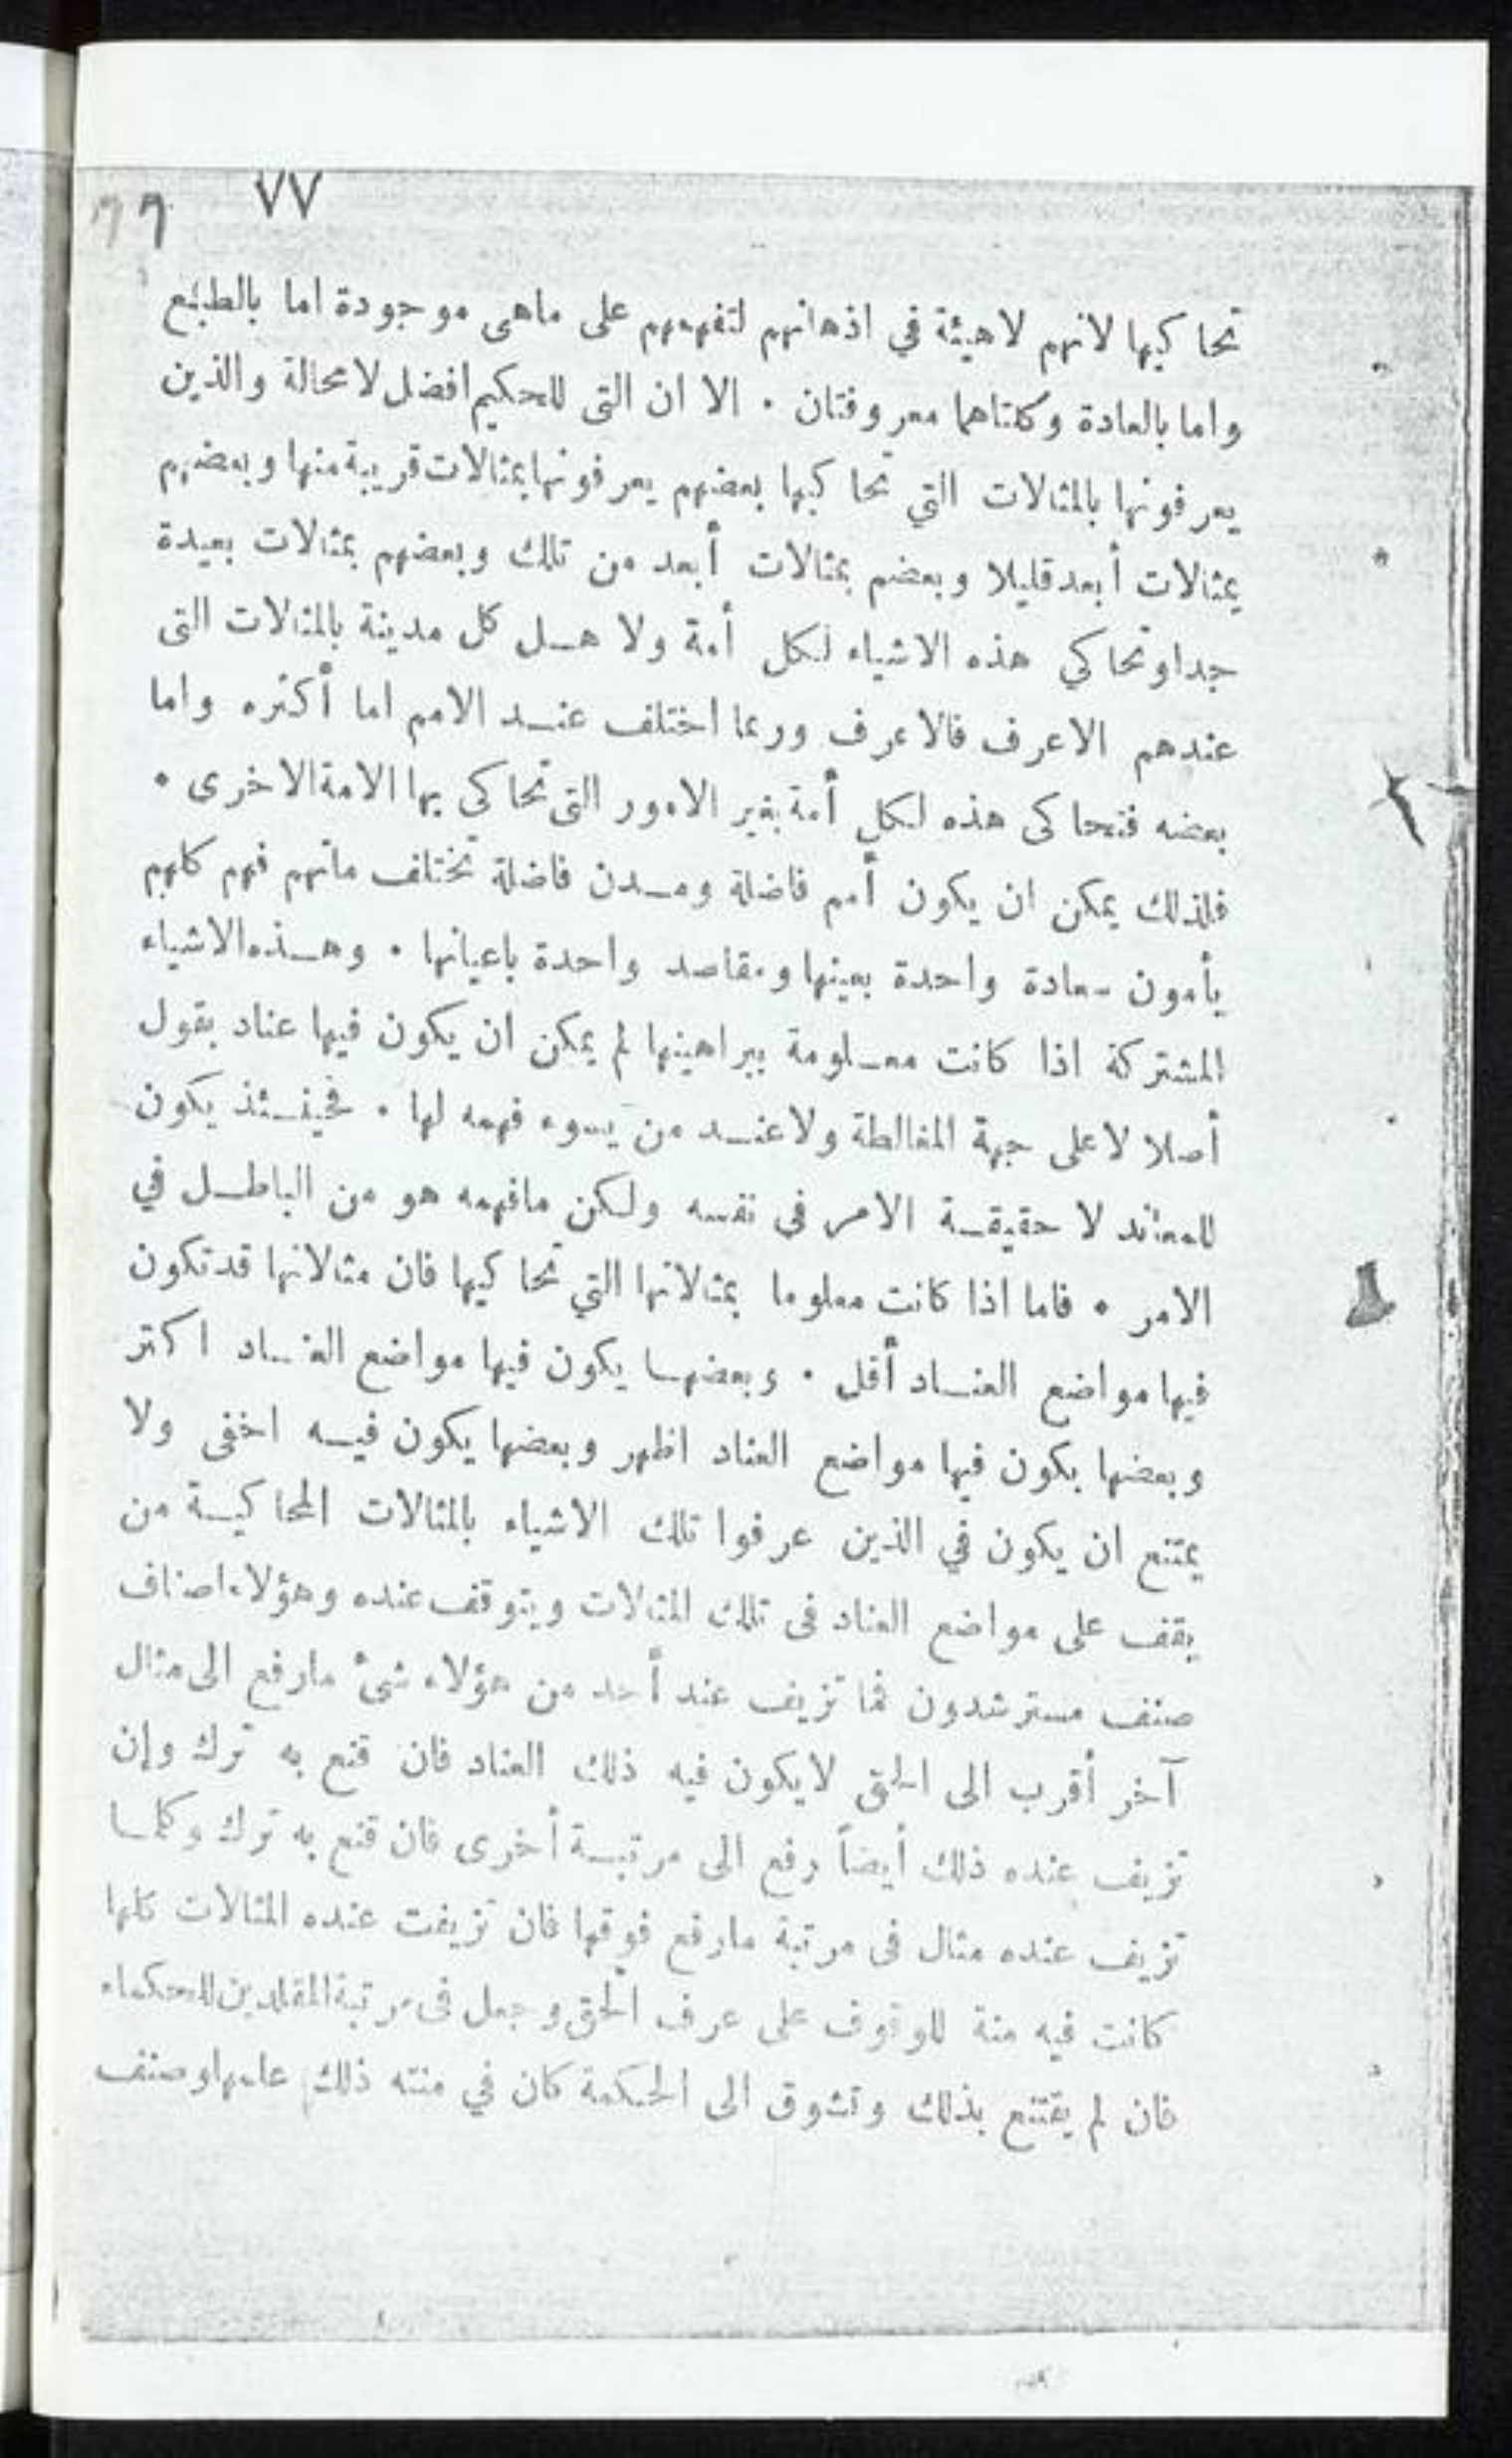 ٧٧
تحاكيها لانهم لاهيئة في اذهانهم لتفهمهم على ماهى موجودة اما بالطبع
واما بالعادة وكلتاهما معروفتان . الا ان التى للحكيم افضل لامحالة والذين
يعرفونها بالمثالات التي تحاكيها بعضهم يعرفونها بمثالات قريبة منها وبعضهم
بمثالات أبعد قليلا وبعضم بمثالات أبعد من تلك وبعضهم بمثالات بعيدة
جدا وتحاكي هذه الاشياء لكل أمة ولا هل كل مدينة بالمثالات التى
عندهم الاعرف فالاعرف وربما اختلف عند الامم اما أكثره واما
بعضه فتحاكى هذه لكل أمة بغير الامور التى تحاكى بها الامة الاخرى .
فلذلك يمكن ان يكون أمم فاضلة ومدن فاضلة تختلف ملتهم فهم كلهم
يأمون سعادة واحدة بعينها ومقاصد واحدة باعيانها . وهذه الاشياء
المشتركة اذا كانت معلومة ببراهينها لم يمكن ان يكون فيها عناد بقول
أصلا لاعلى جهة المغالطة ولا عند من يسوء فهمه لها . فحينئذ يكون
للمعاند لا حقيقة الامر فى نفسه ولكن مافهمه هو من الباطل في
الامر . فاما اذا كانت معلوما بمثالاتها التي تحاكيها فان مثالاتها قد تكون
فيها مواضع العناد أقل . وبعضها يكون فيها مواضع العناد اكثر
وبعضها يكون فيها مواضع العناد اظهر وبعضها يكون فيه اخفى ولا
يمتنع ان يكون في الذين عرفوا تلك الاشياء بالمثالات المحاكية من
يقف على مواضع العناد فى تلك المثالات ويتوقف عنده وهؤلاء اصناف
صنف مسترشدون فما تزيف عند أحد من هؤلاء شئ مارفع الى مثال
آخر أقرب الى الحق لايكون فيه ذلك العناد فان قنع به ترك وإن
تزيف عنده ذلك أيضاً رفع الى مرتبة أخرى فان قنع به ترك وكلما
تزيف عنده مثال فى مرتبة مارفع فوقها فان تزيفت عنده المثالات كلها
كانت فيه منة للوقوف على عرف الحق وجعل فى مرتبة المقلدين للحكماء
فان لم يقتنع بذلك وتشوق الى الحكمة كان في منته ذلك علمها وصنف